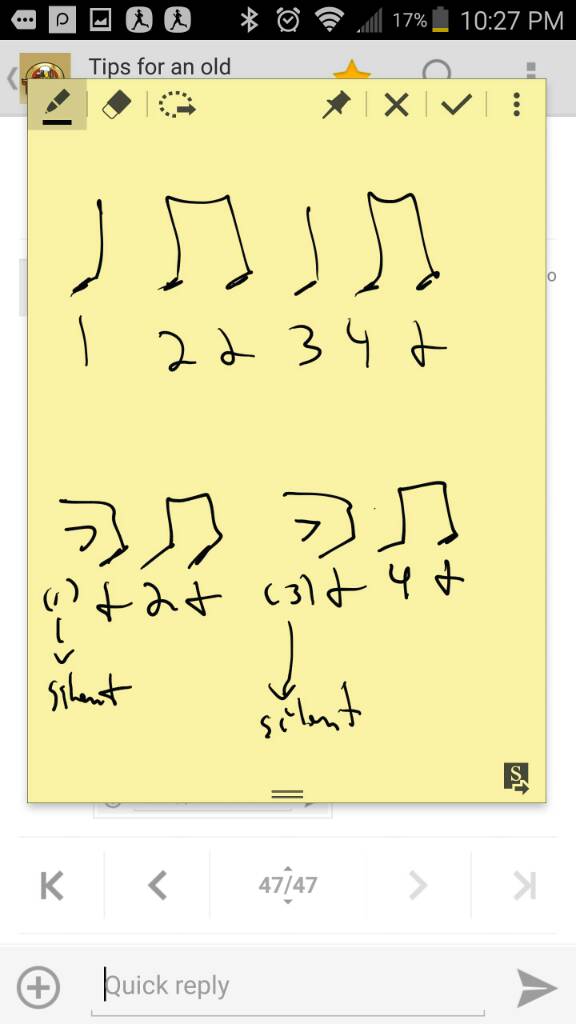 17% 10:27 PM
Tips for an old
1 2 & 3 4 &
(1) & 2 & (3) & 4 &
silent silent
47/47
Quick reply